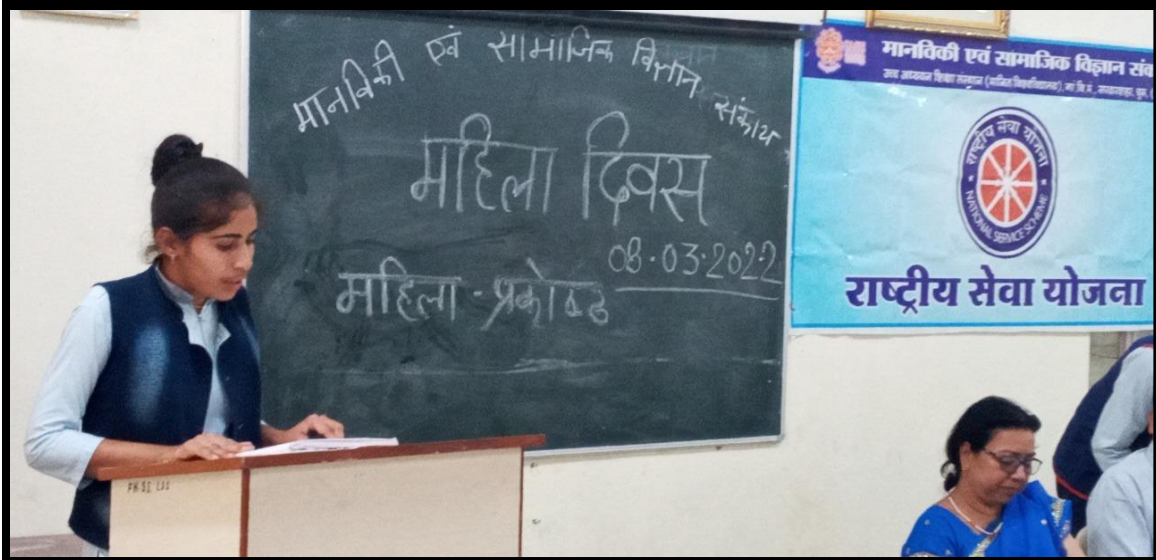 मानविकी एवं सामाजिक विज्ञान संकाय
महिला दिवस
08.03.2022
महिला - प्रकोष्ठ
मानविकी एवं सामाजिक विज्ञान संव
राष्ट्रीय सेवा योजना
NATIONAL SERVICE SCHEME
राष्ट्रीय सेवा योजना